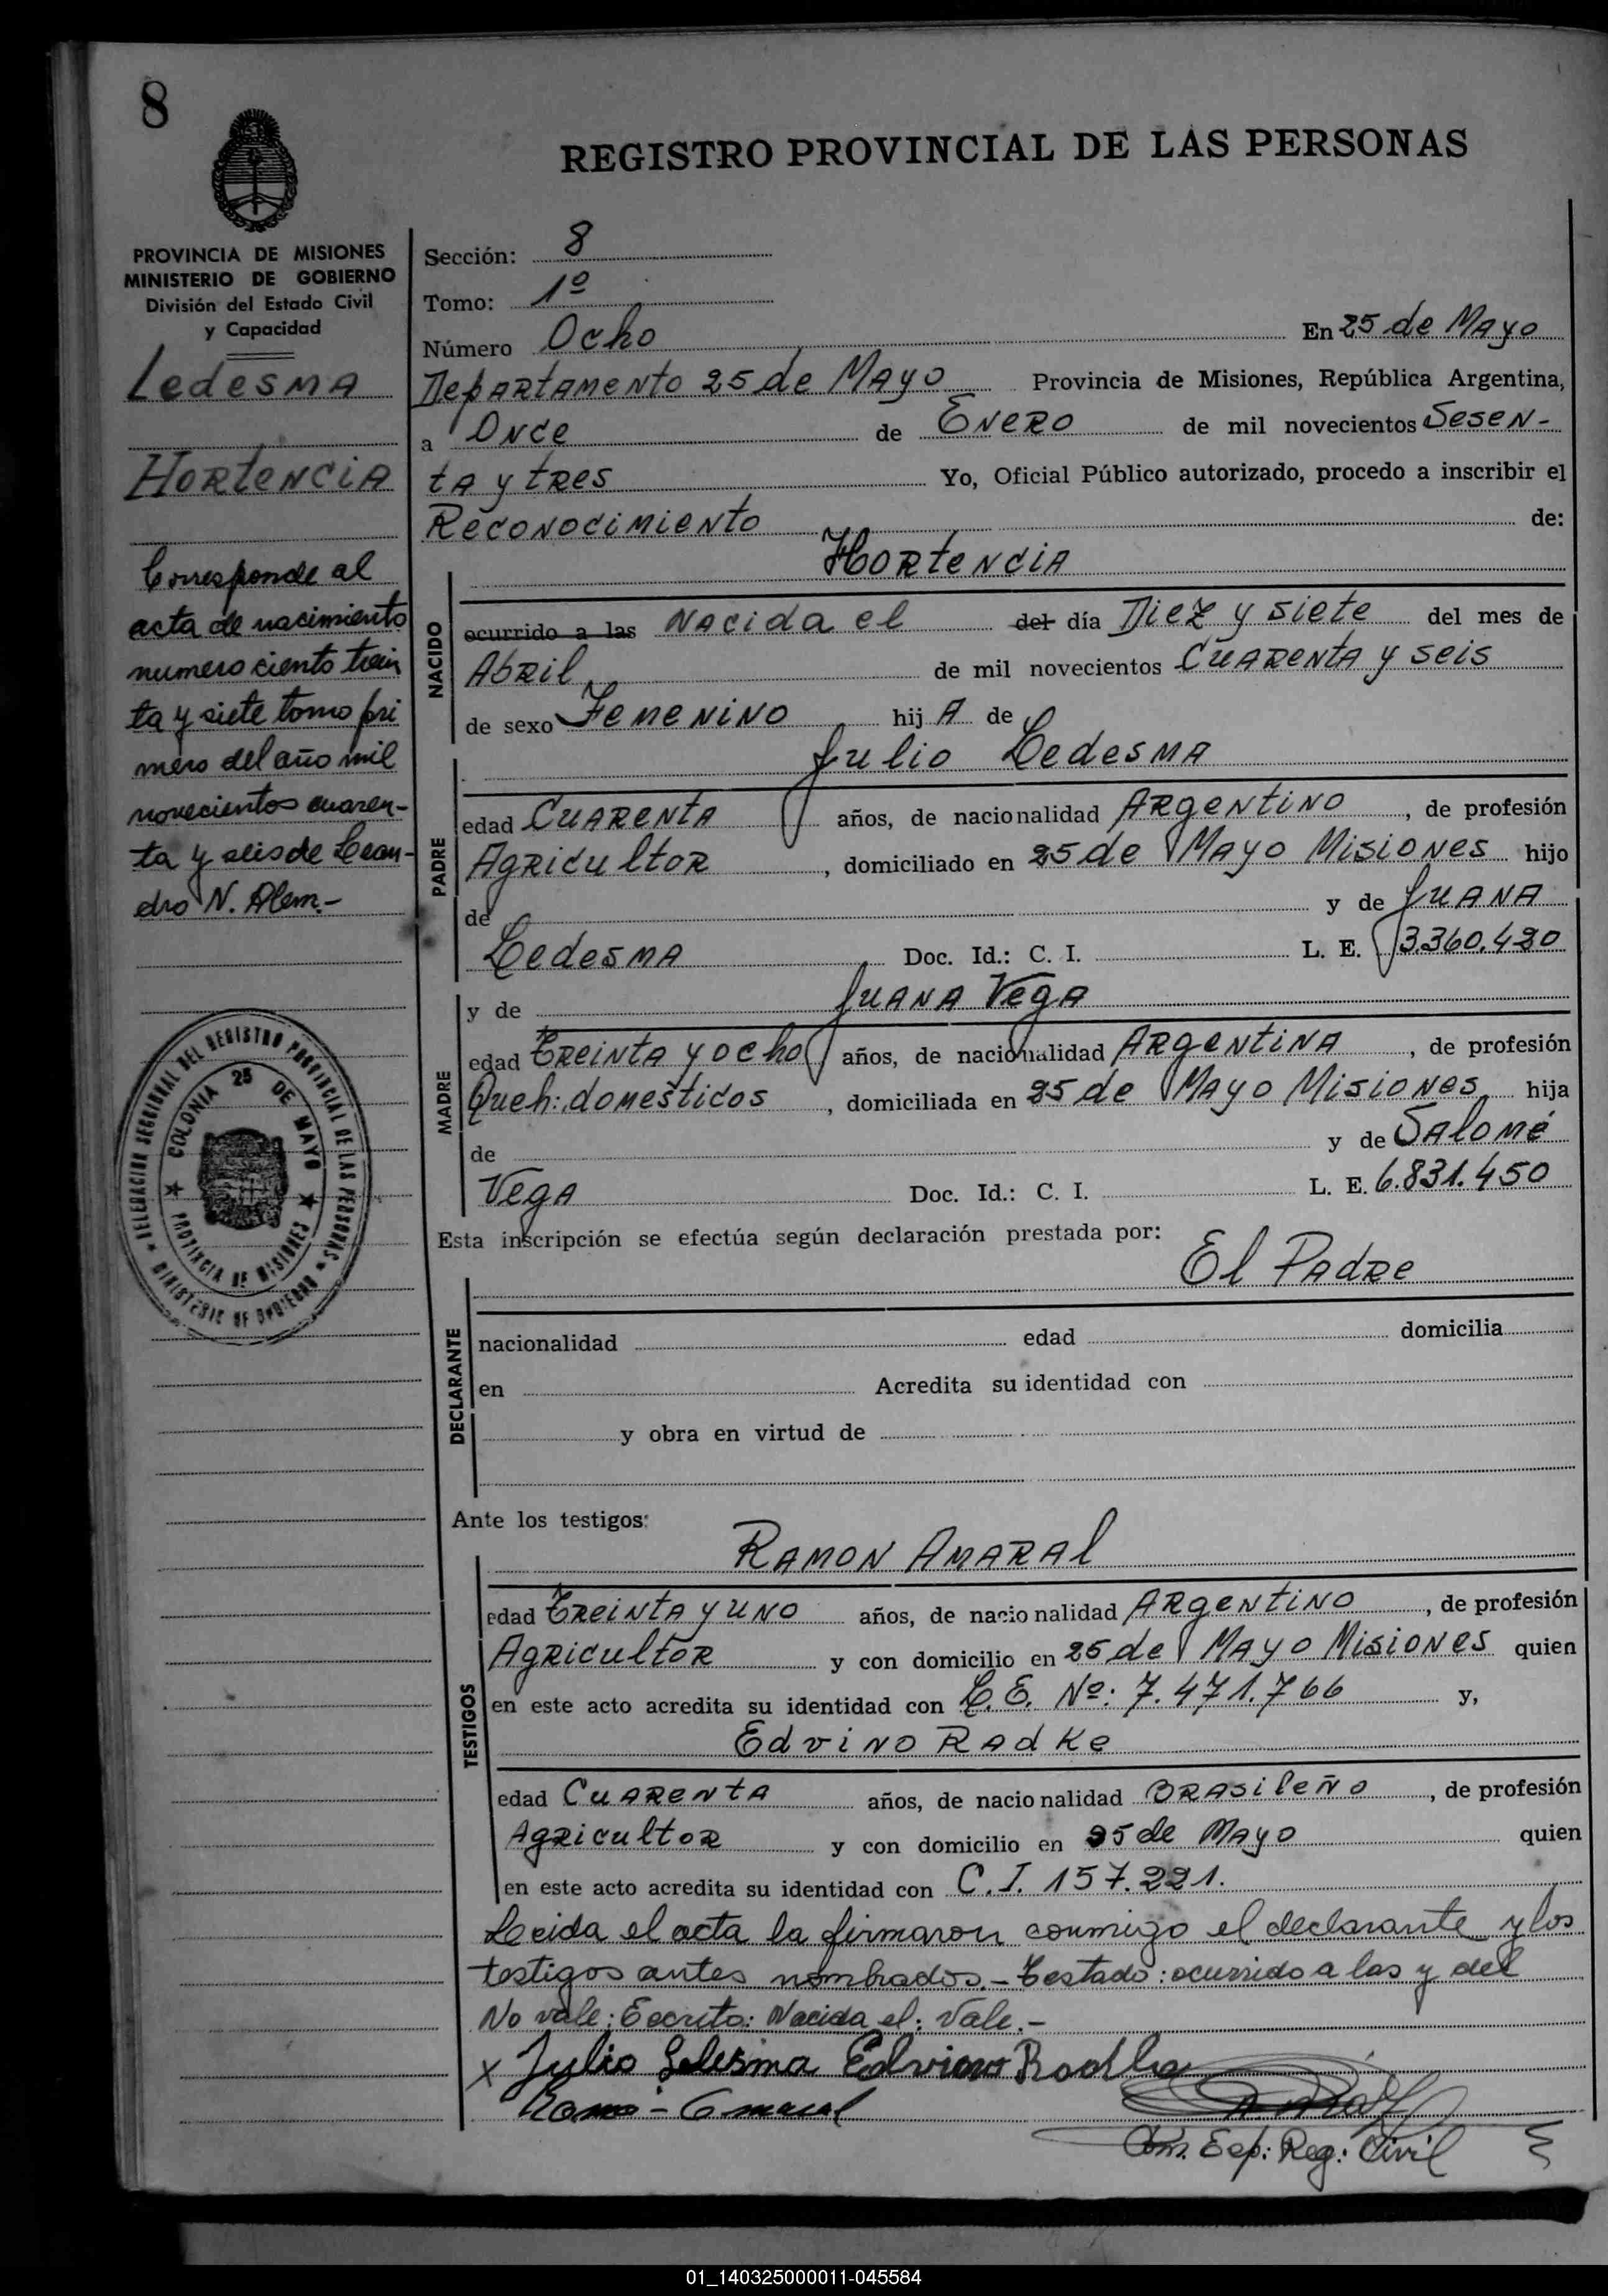 8
REGISTRO PROVINCIAL DE LAS PERSONAS
PROVINCIA DE MISIONES
MINISTERIO DE GOBIERNO
División del Estado Civil
y Capacidad
Ledesma
Hortencia
Corresponde al
acta de nacimiento
numero ciento trein
ta y siete tomo pri
mero del año mil
novecientos cuaren-
ta y seis de Lean-
dro N. Alem.-
DELEGACION SECCIONAL DEL REGISTRO PROVINCIAL DE LAS PERSONAS
MINISTERIO DE GOBIERNO
COLONIA 25 DE MAYO
PROVINCIA DE MISIONES
Sección: 8
Tomo: 1º
Número Ocho En 25 de Mayo
Departamento 25 de Mayo Provincia de Misiones, República Argentina,
a Once de Enero de mil novecientos Sesen-
ta y tres Yo, Oficial Público autorizado, procedo a inscribir el
Reconocimiento de:
Hortencia
NACIDO
ocurrido a las Nacida el del día Diez y siete del mes de
Abril de mil novecientos Cuarenta y seis
de sexo Femenino hij A de
Julio Ledesma
PADRE
edad Cuarenta años, de nacionalidad Argentino, de profesión
Agricultor, domiciliado en 25 de Mayo Misiones hijo
de y de Juana
Ledesma Doc. Id.: C. I. L. E. 3.360.480
y de Juana Vega
MADRE
edad Treinta y ocho años, de nacionalidad Argentina, de profesión
Queh: domesticos, domiciliada en 25 de Mayo Misiones hija
de y de Salomé
Vega Doc. Id.: C. I. L. E. 6.831.450
Esta inscripción se efectúa según declaración prestada por:
El Padre
DECLARANTE
nacionalidad edad domicilia
en Acredita su identidad con
y obra en virtud de
Ante los testigos:
Ramon Amaral
TESTIGOS
edad Treinta y uno años, de nacionalidad Argentino, de profesión
Agricultor y con domicilio en 25 de Mayo Misiones quien
en este acto acredita su identidad con L.E. Nº: 7.471.766 y,
Edvino Radke
edad Cuarenta años, de nacionalidad Brasileño, de profesión
Agricultor y con domicilio en 25 de Mayo quien
en este acto acredita su identidad con C.I. 157.221.
Leida el acta la firmaron conmigo el declarante y los
testigos antes nombrados.- Testado: ocurrido a las y del
No vale: Escrito: Nacida el: Vale.-
x Julio Ledesma Edvino Radke
Esp: Reg: Civil
01_140325000011-045584